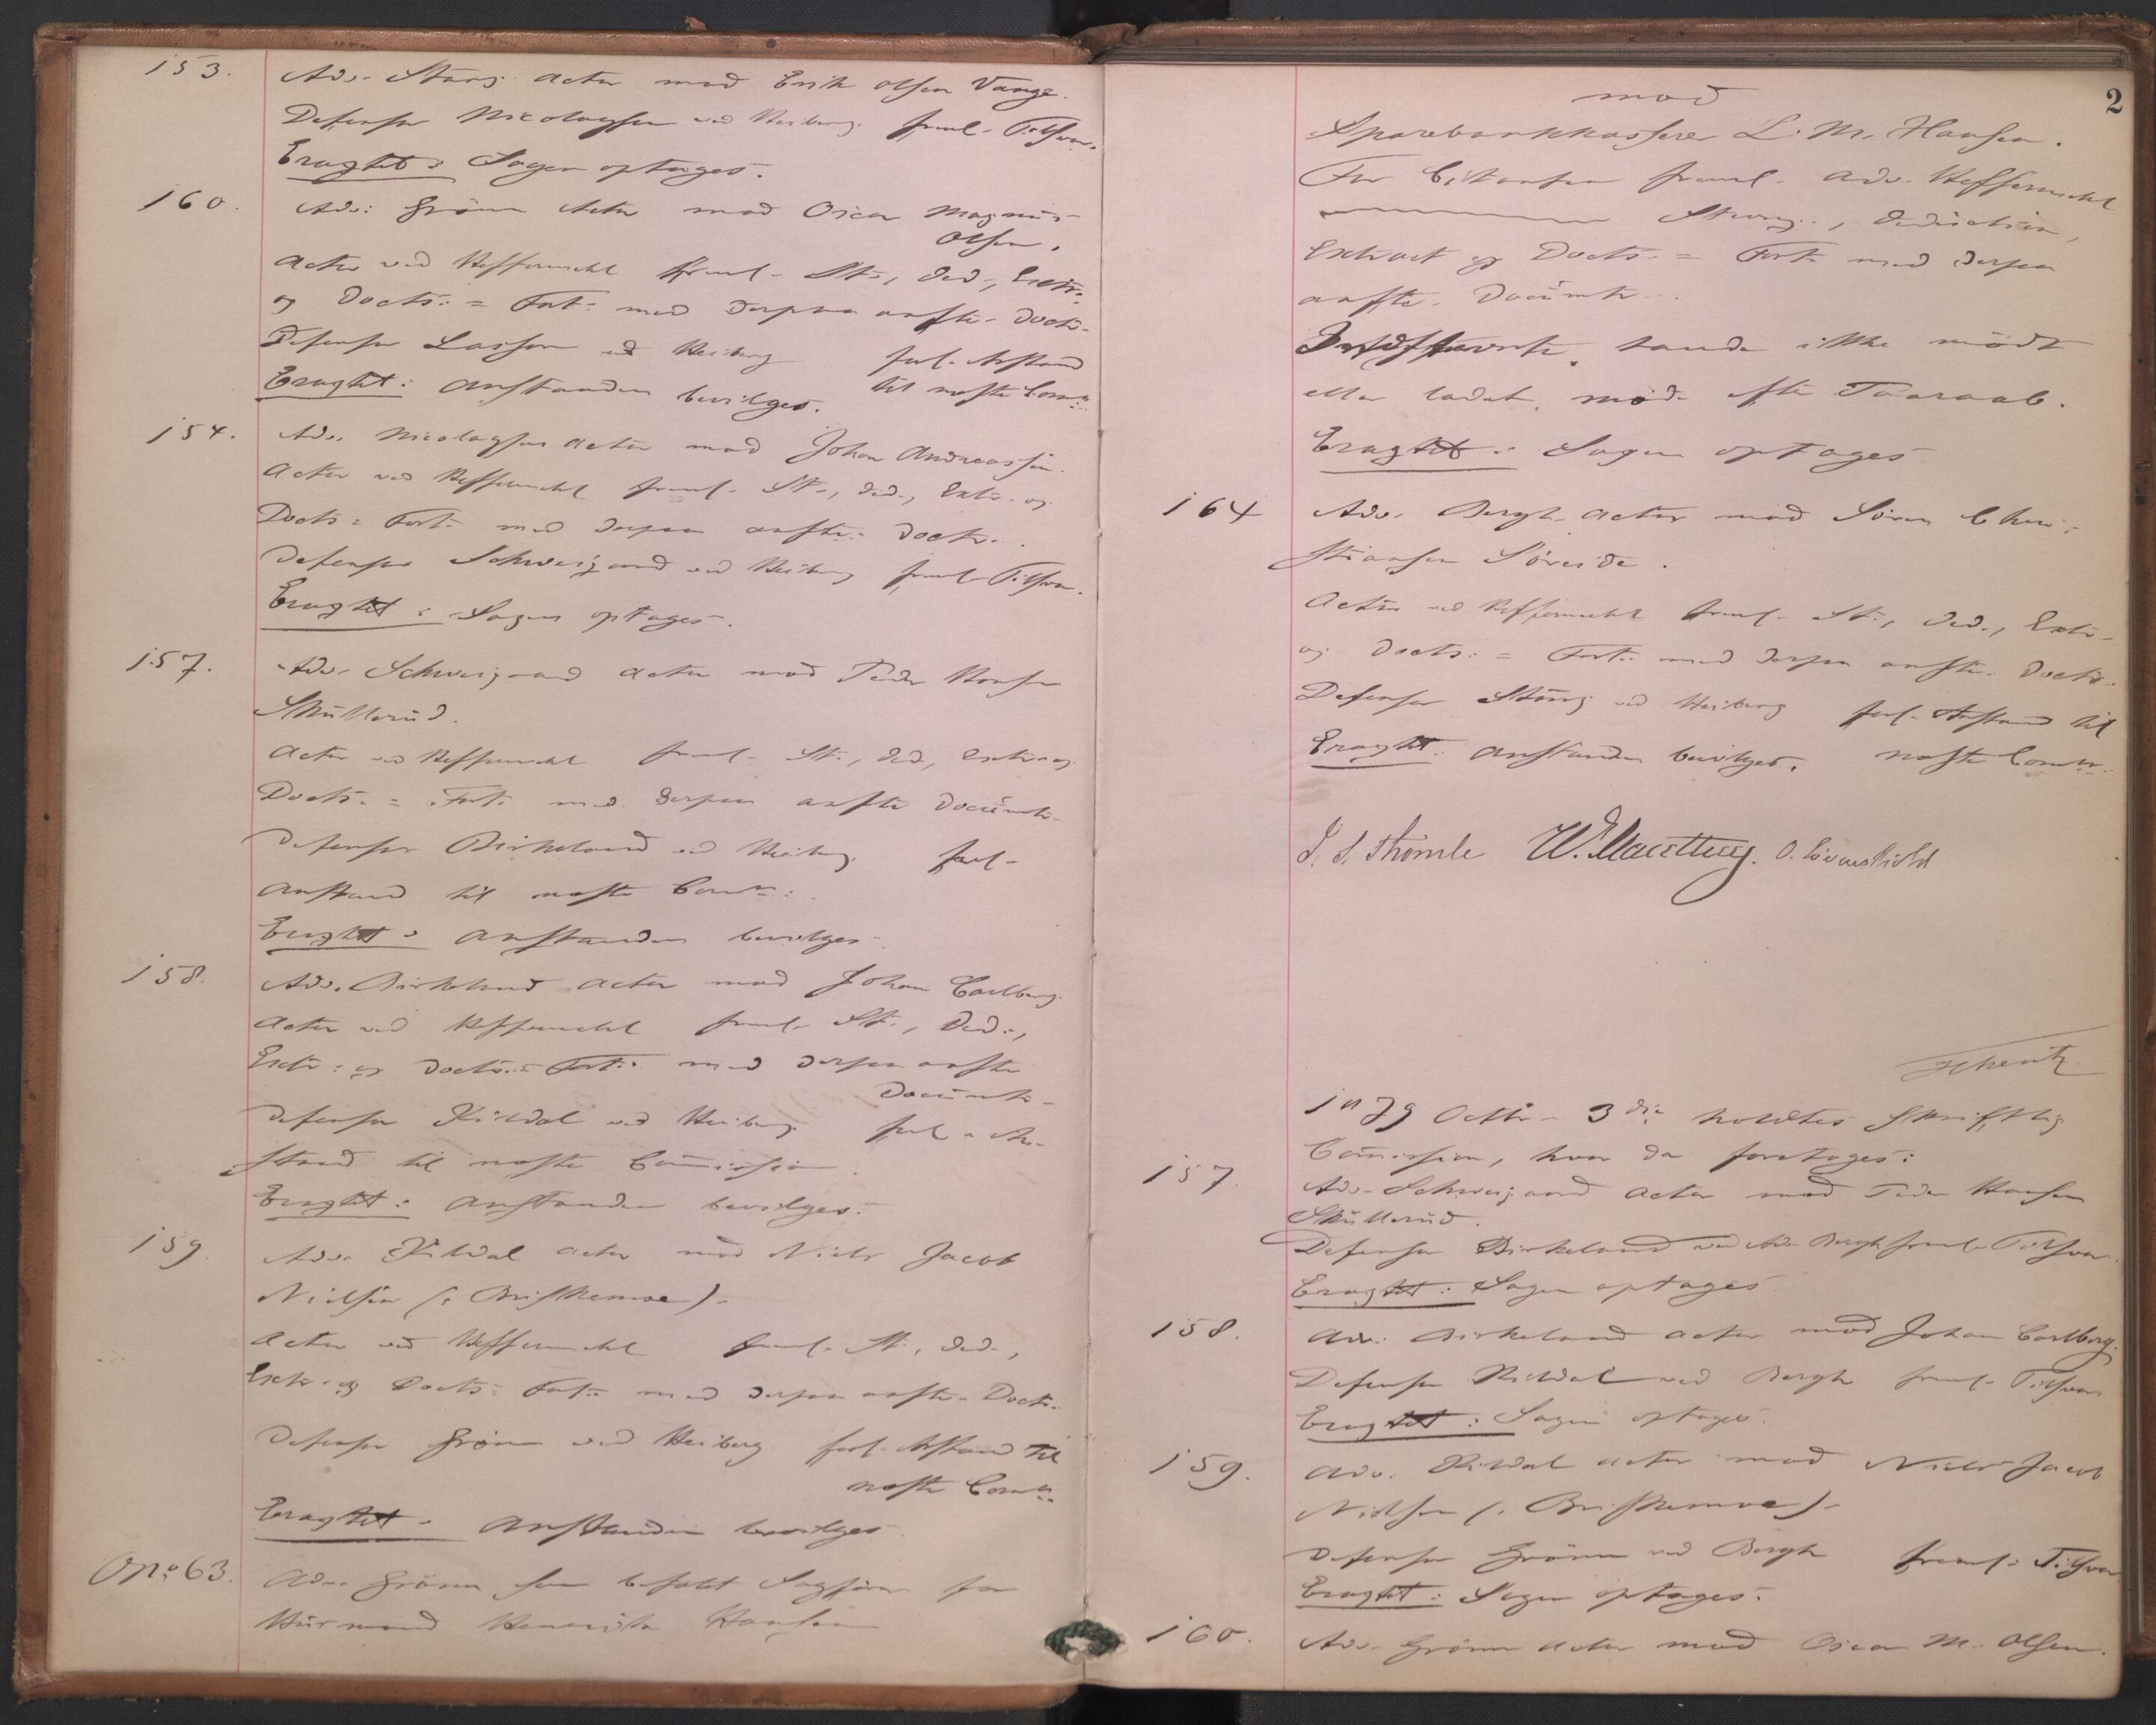 153. Adv. Stang Actor mod Erik Olsen Vange.
Defensor Nicolaysen ved Heiberg freml. Tilsvar.
Eragtet: Sagen optages.
160. Adv: Grönn Actor mod Oscar Magnus
Olsen.
Actor ved Heffermehl freml. St., Ded., Extr.
og Docts. = Fort. med derpaa anfte. Docts.
Defensor Lasson ved Heiberg forl. Anstand
Eragtet: Anstanden bevilges. til næste Comn.
154. Adv. Nicolaysen Actor mod Johan Andreassen.
Actor ved Heffermehl freml. St., Ded., Extr. og
Docts = Fort. med derpaa anfte. Docts.
Defensor Schweigaard ved Heiberg freml. Tilsvar.
Eragtet: Sagen optages.
157. Adv. Schweigaard Actor mod Peder Hansen
Skullerud.
Actor ved Heffermehl freml. St., Ded., Extr. og
Docts. = Fort. med derpaa anfte Documtr.
Defensor Birkeland ved Heiberg forl.
Anstand til næste Comn:
Eragtet: Anstanden bevilges.
158. Adv. Birkeland Actor mod Johan Carlberg.
Actor ved Heffermehl freml. St., Ded.,
Extr. og Docts. = Fort. med derpaa anfte
Documtr.
Defensor Kildal ved Heiberg forl. An-
stand til næste Commission.
Eragtet: Anstanden bevilges.
159. Adv. Kildal Actor mod Niels Jacob
Nielsen (: Briskemoe).
Actor ved Heffermehl freml. St., Ded.,
Extr. og Docts = Fort. med derpaa anfte. Docts.
Defensor Grönn ved Heiberg forl. Anstand til
næste Comn.
Eragtet. Anstanden bevilges.
No. 63. Adv. Grönn som befalet Sagförer for
Huusmand Hansen
2
mod
Sparebankkasserer L. M. Hansen.
For Citanten freml. Adv. Heffermehl
Stevng., Deduction,
Extract og Docts. = Fort. med derpaa
anfte. Documtr.
Indstevnte havde ikke mödt
eller ladet möde efter Paaraab.
Eragtet: Sagen optages
164 Adv. Bergh Actor mod Sören Chri-
stiansen Söreide.
Actor ved Heffermehl freml. St., Ded., Extr.
og Docts. = Fort. med derpaa anfte. Docts.
Defensor Stang ved Heiberg forl. Anstand til
Eragtet: Anstanden bevilges. næste Comn.
O. Lövenskiold
1879 Octbr. 3die holdtes skriftlig
Commission, hvor da foretages:
157. Adv. Schweigaard Actor mod Peder Hansen
Skullerud.
Defensor Birkeland ved Adv. Bergh freml. Tilsvar.
Eragtet: Sagen optages
158. Adv. Birkeland Actor mod Johan Carlberg.
Defensor Kildal ved Bergh freml. Tilsvar
Eragtet: Sagen optages.
159. Adv. Kildal Actor mod Niels Jacob
Nielsen (: Briskemoe).
Defensor Grönn ved Bergh freml. Tilsvar
Eragtet: Sagen optages.
160. Adv. Grönn Actor mod Oscar M. Olsen.